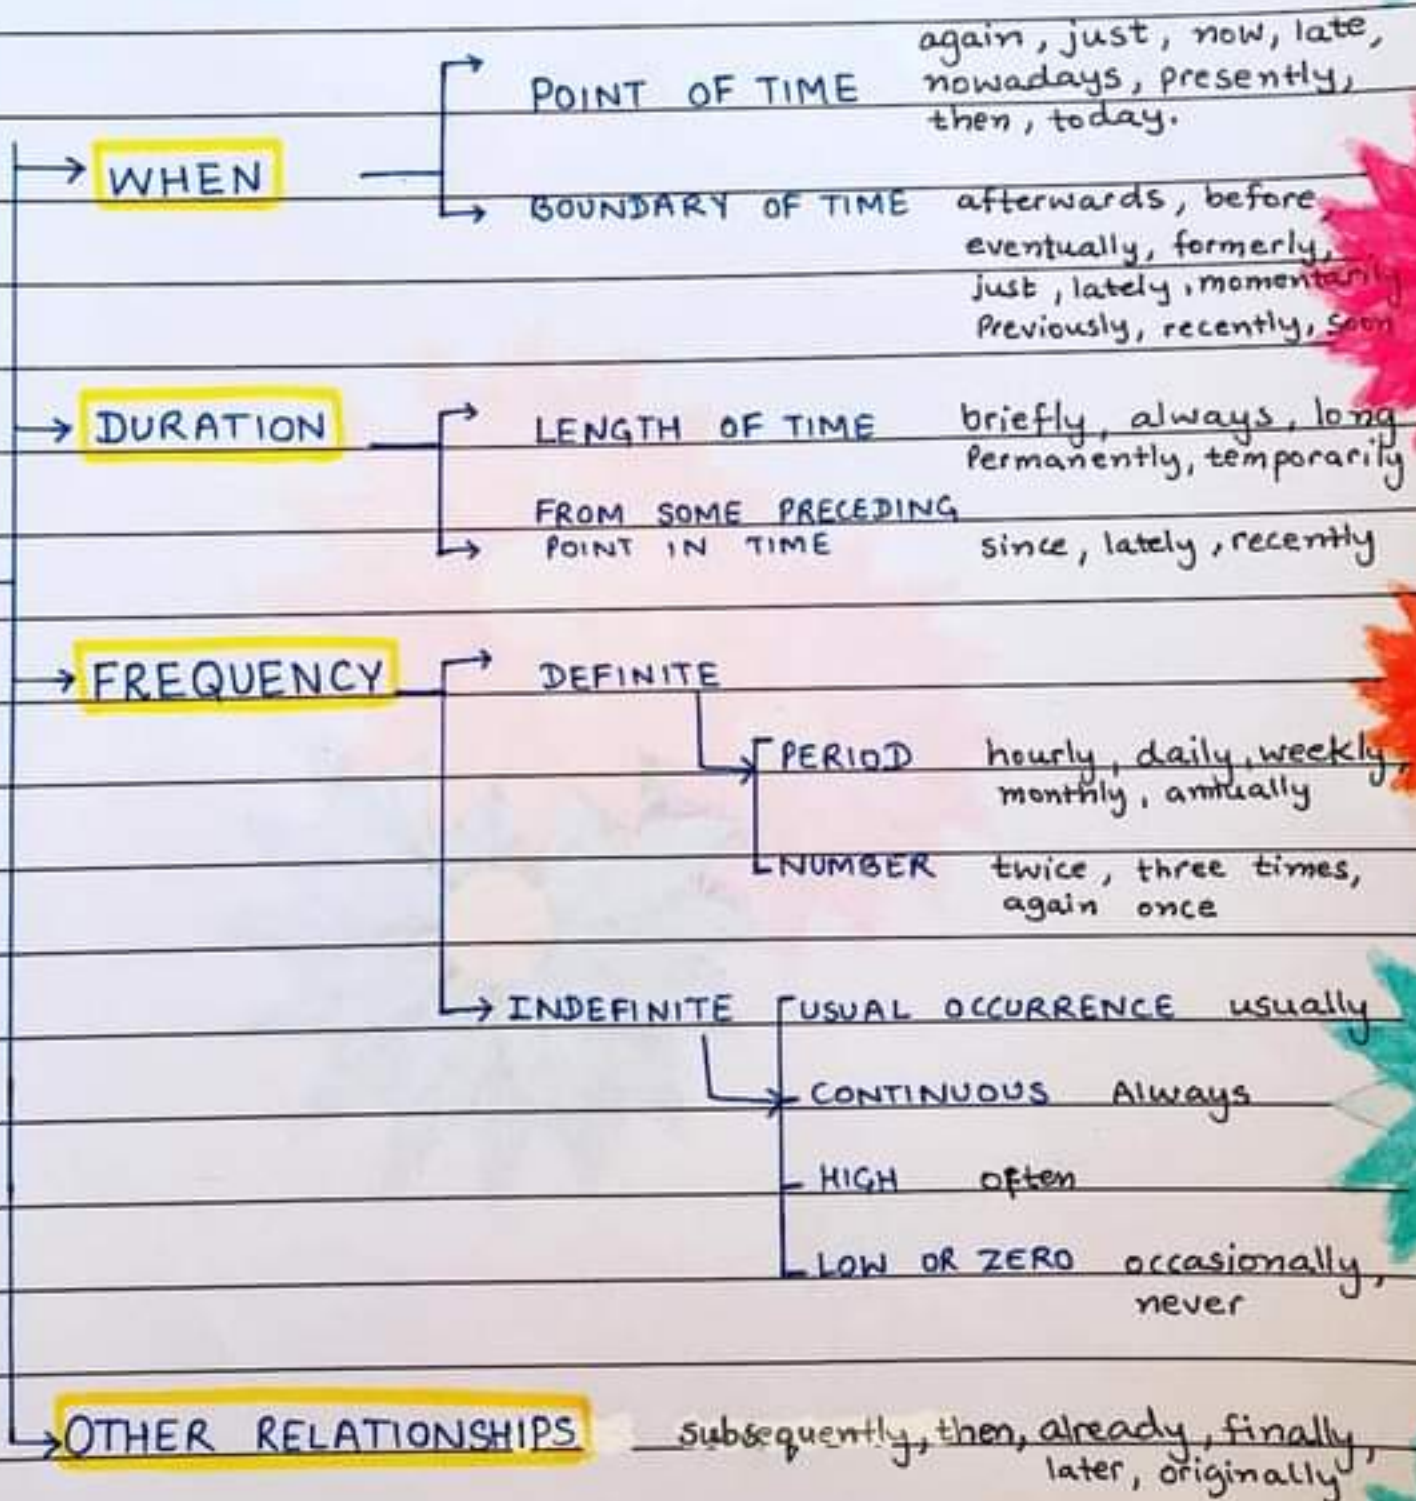 again, just, now, late,
POINT OF TIME nowadays, presently,
then, today.
WHEN
BOUNDARY OF TIME afterwards, before,
eventually, formerly,
just, lately, momentarily
Previously, recently, soon
DURATION LENGTH OF TIME briefly, always, long
Permanently, temporarily
FROM SOME PRECEDING
POINT IN TIME since, lately, recently
FREQUENCY DEFINITE
PERIOD hourly, daily, weekly,
monthly, annually
NUMBER twice, three times,
again once
INDEFINITE USUAL OCCURRENCE usually
CONTINUOUS Always
HIGH often
LOW OR ZERO occasionally,
never
OTHER RELATIONSHIPS subsequently, then, already, finally,
later, originally